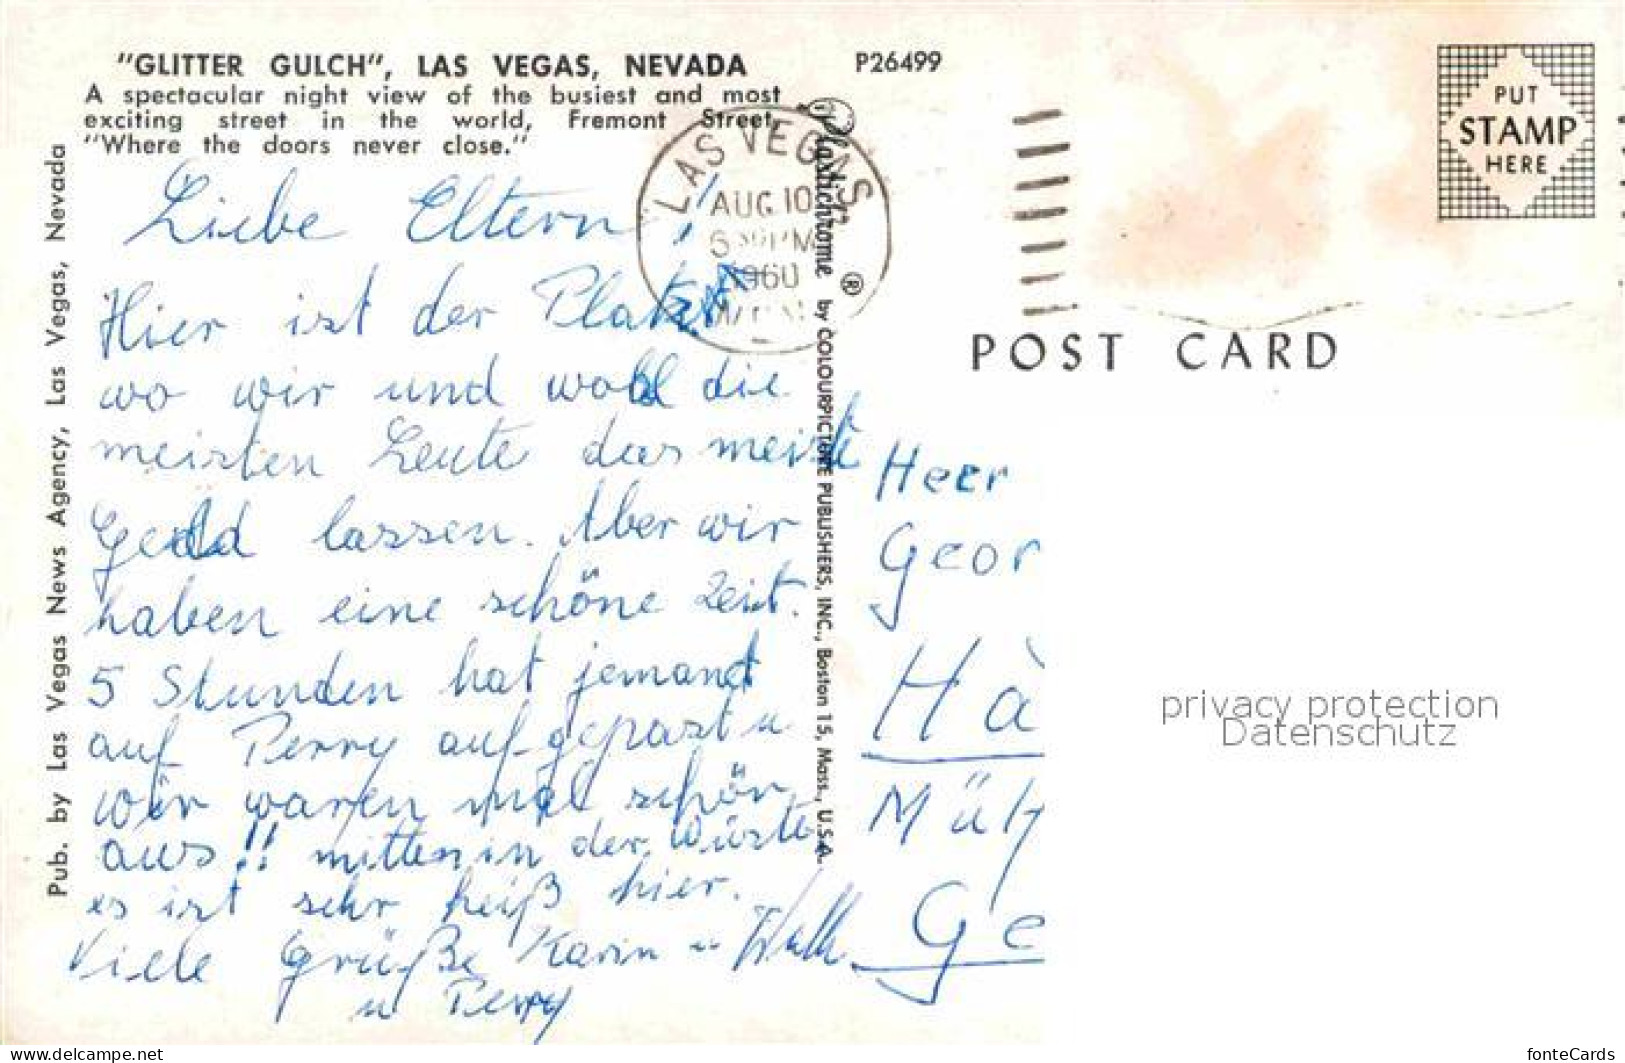 "GLITTER GULCH", LAS VEGAS, NEVADA
A spectacular night view of the busiest and most
exciting street in the world, Fremont Street,
"Where the doors never close."
P26499
PUT
STAMP
HERE
LAS VEGAS
AUG 10
PM
1960
POST CARD
Pub. by Las Vegas News Agency, Las Vegas, Nevada
Plastichrome ® by COLOURPICTURE PUBLISHERS, INC., Boston 15, Mass., U.S.A.
Liebe Eltern!
Hier ist der Platz
wo wir und wohl die
meisten Leute das meiste
Geld lassen. Aber wir
haben eine schöne Zeit.
5 Stunden hat jemand
auf Perry aufgepasst u
wir waren mal schön
aus!! mitten in der Wüste
es ist sehr heiß hier.
Viele Grüße Karin u
u Perry
Herr
Geor
Hä
Müh
Ge
privacy protection
Datenschutz
https://www.delcampe.net
fonteCards